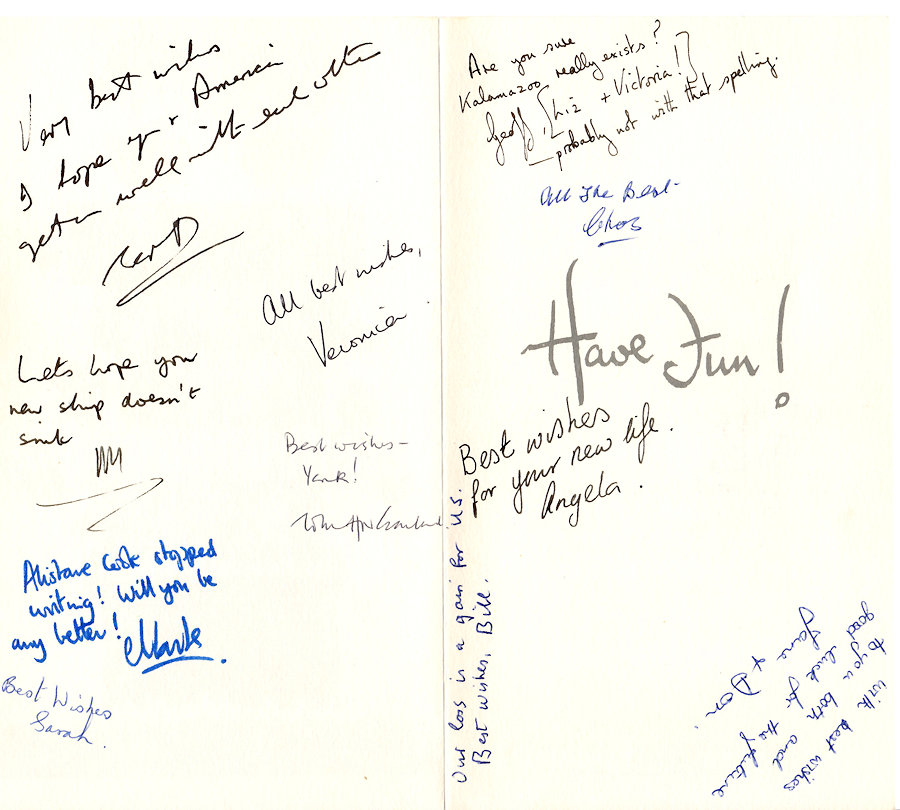 Very best wishes
I hope you & America
get on well with each other
All best wishes,
Veronica.
Lets hope you
new ship doesn't
sink
Best wishes-
Yank!
John
Alistair Cooke stopped
writing! Will you be
any better!
Mark.
Best Wishes
Sarah.
Are you sure
Kalamazoo really exists?
Geoff, [Liz + Victoria!]
— probably not with that spelling.
All The Best-
Chas
Have Fun!
Best wishes
for your new life.
Angela.
Our loss is a gain for US.
Best wishes, Bill.
with best wishes
to you both and
good luck for the future
Jane + Don.